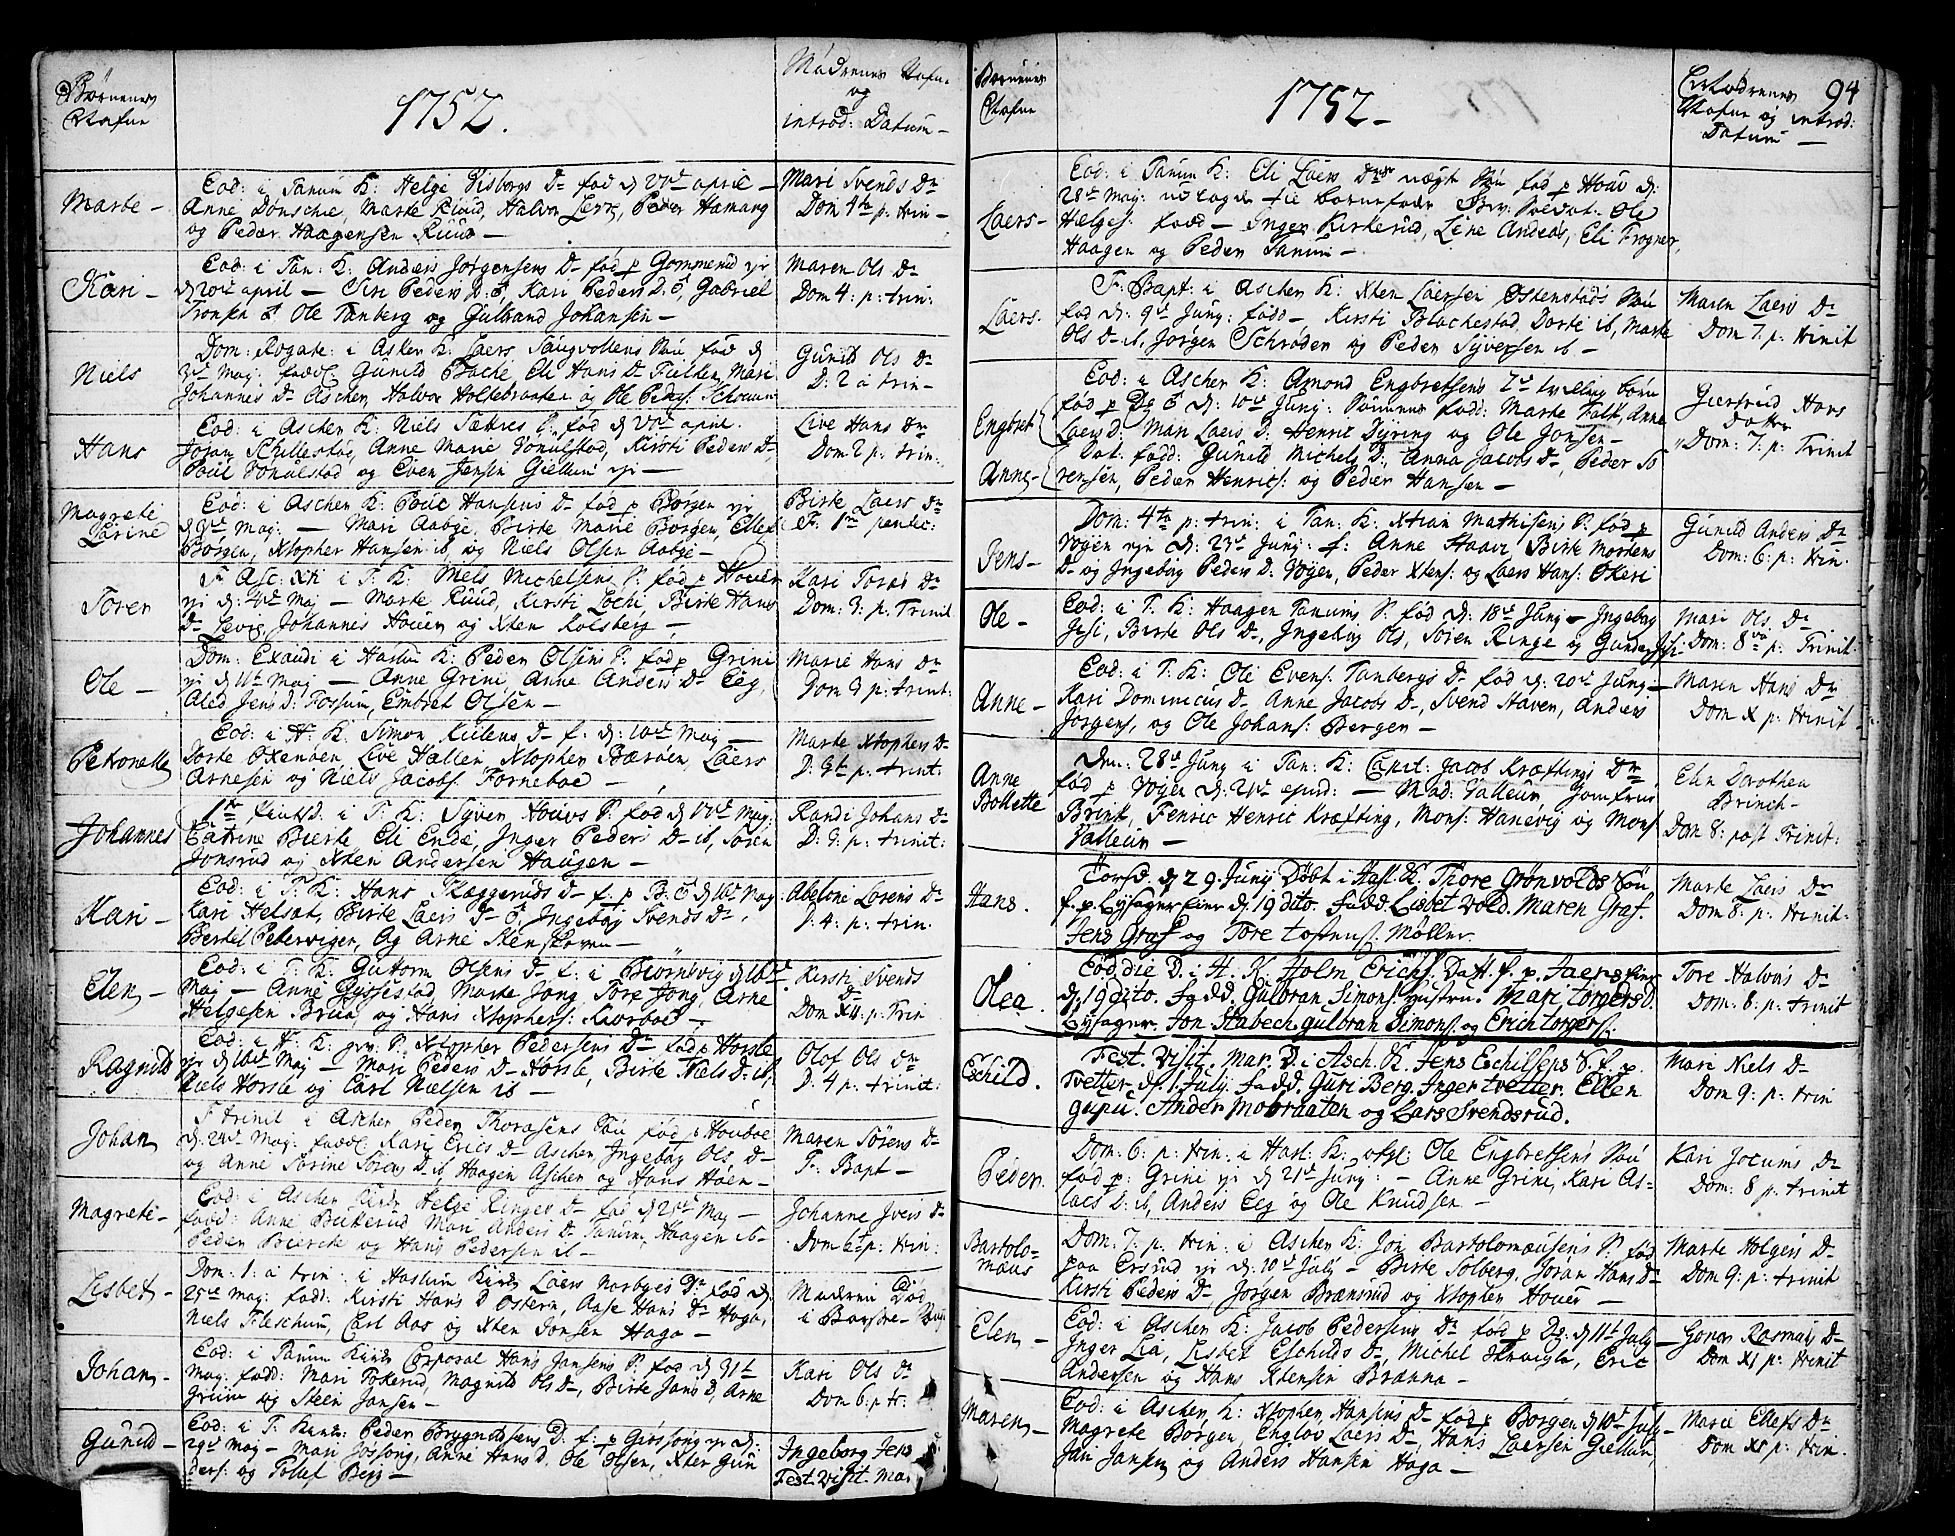 Børnenes
Nafne
1752.
Mødrenes Nafne
og
introd: Datum
Marte -
Eod: i Tanum K: Helge Visbergs D. fød d april -
Anne Dønschie, Marte Ruud, Halvor, Peder Hamang
og Peder Haagensen Ruud -
Mari Svends Dr
Dom 4te p: trin -
Kari -
Eod: i Tan: K: Anders Jørgensens D. fød p Gommerud yr
d 20de april - Siri Peders D: Kari Peders D: Gabriel
Tronsen Ole Tanberg og Gulbrand Johansen -
Maren Ols Dr
Dom 4: p: trin:
Niels
Dom: Rogate: i Asker K: Laers Søn fød d
3de Maj: Gunild Bache Eli Hans D. Mari
Johannes D. Aschen, Halvor Holtebraaten og Ole Peders:
Gunild Ols Dr
D: 2 a trin -
Hans
Eod: i Aschen K: Niels S. fød d april
Joran Schillestad, Anne Marie Vonulstad, Kirsti Peders D.
Poul Vonulstad og Even Jensen Giellum yr -
Live Hans Dr
Dom 2 p: trin:
Magrete
Larine
Eod: i Aschen K: Poul Hansens D. fød p Borgen yr
d Maj: - Mari Aabye, Birte Marie Borgen, Ellef
Borgen, Xtopher Hansen ib, og Niels Olsen Aabye -
Birte Laers Dr
F. 1me pentec:
Toren
F. Asc: Xti i T: K: Niels Michelsens S. fød p Houen
yr d: 4de Maj - Marte Ruud, Kirsti Lochi, Birte Hans
D. Johannes Houen og Xten Kolsberg -
Kari Toras Dr
Dom: 3: p: Trinit
Ole -
Dom: Exaudi i Haslum K: Peder Olsens S. fød p Grini
yr d Maj - Anne Grini, Anne Anders D. Eeg,
Aled Jens D: Fossum, Embret Olsen -
Marie Hans Dr
Dom 3 p: trinit:
Petronelle
Eod: i H. K: Simon D. f: d: 10de Maj -
Dorte Oxenøen, Live Hallen, Xtopher, Laers
Arnesen og Niels Jacobs: Forneboe -
Marte Xtophers D.
D: p: trinit:
Johannes
1ste i T: K: Syver Houvs S. fød d Maj:
Catrine Bierke, Eli Ende, Inger Peders D. ib, Søren
Jonsrud og Xten Andersen Haugen -
Randi Johans Dr
D: 3: p: trinit:
Kari -
Eod: i T: K: Hans D. f: p d 16de Maj
Kari Helsat, Birte Laers D. Ingebor Svends D.
Bertil Peterviger, Ag Arne Stenskoven -
Abeloni Lorens Dr
D: 4: p: trin.
Elen -
Eod: i T: K: Guttorm Olsens D. f: i Biørnsvig d
Maj - Anne Gyssestad, Marte Jong, Tore Jong, Arne
Helgesen Bruu, og Hans Xtophers: Kiorboe -
Kirsti Svends
Dr
Dom XII: p: Trin
Ragnild
Eod: i H. K: Xtopher Pedersens D. fød p Horsle
yr d 16de Maj - Mari Peders D. Horsle, Birte Niels D. ib,
Niels Horsle og Carl Nielsen ib -
Olof Ols Dr
D: 4 p: trinit:
Johan
F. trinit i Aschen Peder Thorasens Søn fød p Houboe
d: 24de Maj: fadd: Kari Erics D. Aschen, Ingebor Ols D.
og Anne Sorine Soras D. ib, Haagen Aschen og Hans Høen -
Maren Sørens Dr
F: Bapt -
Magrete -
Eod: i Aschen Kirk: Helge Ringes D. fød d 25de Maj -
fadd: Anne Beckerud Mari Anders D. Tanum, Haagen ib -
Peder Biercke og Hans Pedersen ib -
Johanne Ivers Dr
Dom 6te p: trin:
Lisbet -
Dom: 1: a trin: i Haslum Kirk: Laers Norbyes D. fød d:
25de Maj: fadd: Kirsti Hans D Ostern, Aase Hans D. Haga,
Niels Fleschum, Carl Aas og Xten Jonsen Haga -
Moderen Død
i Barsel
Johan
Eod: i Tanum Kirk: Corporal Hans Jansens S. fød d 31te
Maj: fadd: Mari Tokerud, Magnild Ols D., Birte Jans D, Arne
Grini og Steen Jansen -
Kari Ols Dr
Dom 6: p tr:
Gunild -
Eod: i T: Kirk: Peder Brygnildsens D. f: p Giøssong yr d:
29de Maj - Mari Jossong, Anne Hans D. Ole Olsen, Xter Gun
ders: og Tollef Berg -
Ingeborg Jens
Fest: visit: Mar
Børnenes
Nafne
1752 -
Mødrenes
Nafne og introd:
Datum -
94
Laers -
Eod: i Tanum K: Eli Laers Dr: uægte Søn fød p Houv d:
28de Maj: udlagde til barnefader Sold: Ole
Helges: fadd - Inger Kirkerud, Line Anders, Eli Frogner,
Haagen og Peder Tanum -
Laers.
F: Bapt: i Aschen K: Xten Laersen Ostenstads Søn
fød d: 9de Juny: fadd - Kirsti Blackestad, Dorte ib, Marte
Ols D. ib, Jørgen Schrøder og Peder Syversen ib -
Maren Laers Dr
Dom 7: p: trinit
Engbret
Anne -
Eod: i Aschen K: Amond Engbretsens 2de tvilling børn
fød p d: 10de Juny: fadd: Marte Falk, Anne
Laers D: Mari Laers D: Henric Dyring og Ole Jonsen -
Dat: fadd: Gunild Michels D:, Anna Jacobs D., Peder So
rensen, Peder Henrics: og Peder Hansen -
Giertrud Hans
Datter
Dom: 7: p: Trinit
Jens -
Dom: 4te p: trin: i Tan: K: Xtian Mathisens S. fød p
Vøyen yr d: 23de Juny: f: Anne Haave, Birte Mortens
D. og Ingebor Peders D: Vøyen, Peder Xtens: og Laers Hans: Økeri
Gunild Anders Dr
Dom: 6: p: trin.
Ole -
Eod: i T: K: Haagen Tanums S. fød d: 18de Juny - Ingebor
Jesi, Birte Ols D., Ingebor Ols, Søren Ringe og Gunder
Mari Ols Dr
Dom: 8va p: Trinit
Anne -
Eod: i T: K: Ole Evens: Tanbergs D. fød d: 20de Juny -
Kari Dominicus D. Anne Jacobs D., Svend Staven, Anders
Jørgens, og Ole Johans: Bergen -
Maren Hans Dr
Dom X p: trinit
Anne
Bolette
Den: 28de Juny i Tan: K: Capit: Jacob Kræftings Dr
fød p Vøyen d: 21de ejusd: - Mad: Valleur Jomfru
Brink, Fenric Henric Kræfting, Mons: Hanevig og Mons
Valleur -
Elen Dorothea
Brinch -
Dom 8: post Trinit:
Hans.
Torsd. d 29. Juny Døbt i Hasl. K. Thore Grønvolds Søn
f. p. Lysager Eier d. 19 dito. Fadd. Lisbet Vold. Maren Graf.
Jens Graf og Tore Tostens: Møller.
Marte Laers Dr
Dom 8: p: trinit.
Olea.
Eod. die D. i H. K. Holm Erichs. Datt. f. p. Jaers Eier
d. 19 dito. Fadd. Gulbran Simons. Hustru. Mari Torgers D.
Lysager. Jon Stabech. Gulbran Simons: og Erich Torgers:
Tore Halvors Dr
Dom: 8: p: trinit
Eschild.
Fest. Visit. Mar. D. i Asch. K. Jens Eschilsens S. f. p.
Tvetter d. 1 July. Fadd. Guri Berg. Inger Tvetter. Ellen
Anders Mobraaten og Lars Svendsrud.
Mari Niels D.
Dom 9: p: trin
Peder.
Dom: 6: p: trin: i Hasl: K: Ole Engbretsens Søn
fød p: Grini yr d 21de Juny: - Anne Grini, Kari As-
lacs D: ib, Anders Eeg og Ole Knudsen -
Kari Jocums Dr
Dom: 8 p: trinit
Bartolo-
mæus
Dom: 7: p trin: i Aschen K: Jon Bartolomæusens S. fød
paa Ersrud yr d: 10de July - Birte Solberg, Joran Hans D.
Kirsti Peders D., Jørgen Brænsrud og Xtopher Houer -
Marte Holgers Dr
Dom 9: p: trinit
Elen -
Eod: i Aschen K: Jacob Pedersens Dr fød p d 11te July -
Inger Lia, Lisbet Eschilds D., Michel, Eric
Andersen og Hans Xtensen Brænna -
Gonor Rasmus Dr
Dom XI p: trinit
Maren -
Eod: i Aschen K: Xtopher Hansens D. fød p Borgen d 10de July -
Magrete Borgen, Englov Laers D., Hans Laersen Giellum,
Jan Jansen og Anders Hansen Haga -
Marie Ellefs Dr
Dom XI p: trin.